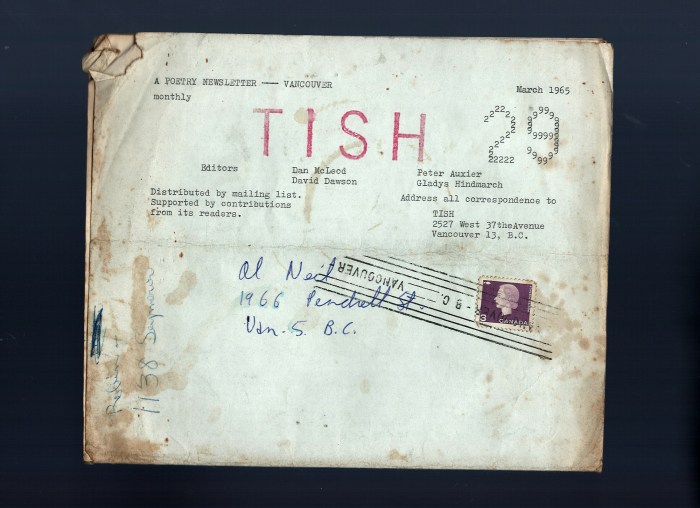 A POETRY NEWSLETTER —— VANCOUVER
monthly
March 1965
TISH
29
Editors
Dan McLeod
David Dawson
Peter Auxier
Gladys Hindmarch
Distributed by mailing list.
Supported by contributions
from its readers.
Address all correspondence to
TISH
2527 West 37theAvenue
Vancouver 13, B.C.
Al Neil
1966 Pendrell St.
Van. 5. B.C.
VANCOUVER
B.C.
3
CANADA
1138 Seymour